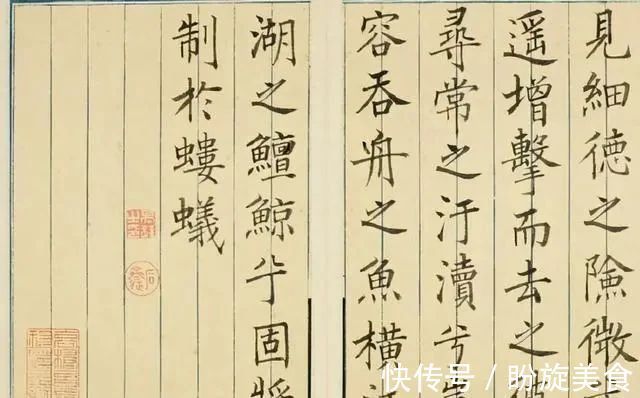 見細徳之險微
遥增擊而去之
尋常之汙瀆兮
容吞舟之魚橫
湖之鱣鯨乎固將
制於螻蟻
快传号 / 盼旋美食